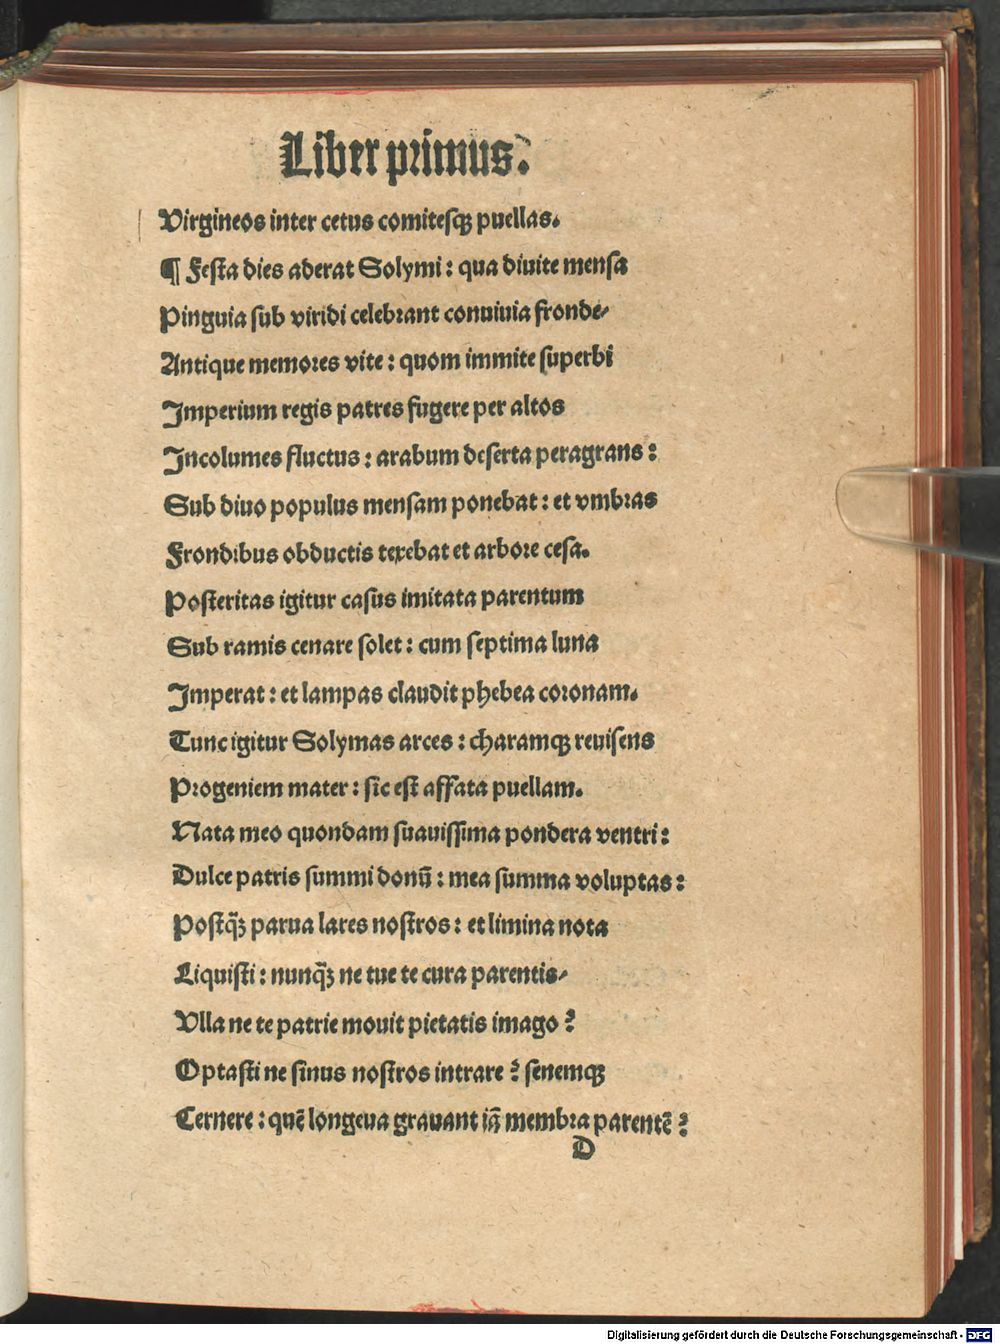 Liber primus.
Virgineos inter cetus comitesqꝫ puellas.
¶ Festa dies aderat Solymi : qua diuite mensa
Pinguia sub viridi celebrant conuiuia fronde/
Antique memores vite : quom immite superbi
Imperium regis patres fugere per altos
Incolumes fluctus : arabum deserta peragrans :
Sub diuo populus mensam ponebat : et vmbras
Frondibus obductis texebat et arbore cesa.
Posteritas igitur casus imitata parentum
Sub ramis cenare solet : cum septima luna
Imperat : et lampas claudit phebea coronam.
Tunc igitur Solymas arces : charamqꝫ reuisens
Progeniem mater : sic est affata puellam.
Nata meo quondam suauissima pondera ventri :
Dulce patris summi donū : mea summa voluptas :
Postq̃ꝫ parua lares nostros : et limina nota
Liquisti : nunq̃ꝫ ne tue te cura parentis/
Vlla ne te patrie mouit pietatis imago ?
Optasti ne sinus nostros intrare ? senemqꝫ
Cernere : quē longeua grauant iā membra parentē ?
D
Digitalisierung gefördert durch die Deutsche Forschungsgemeinschaft - DFG